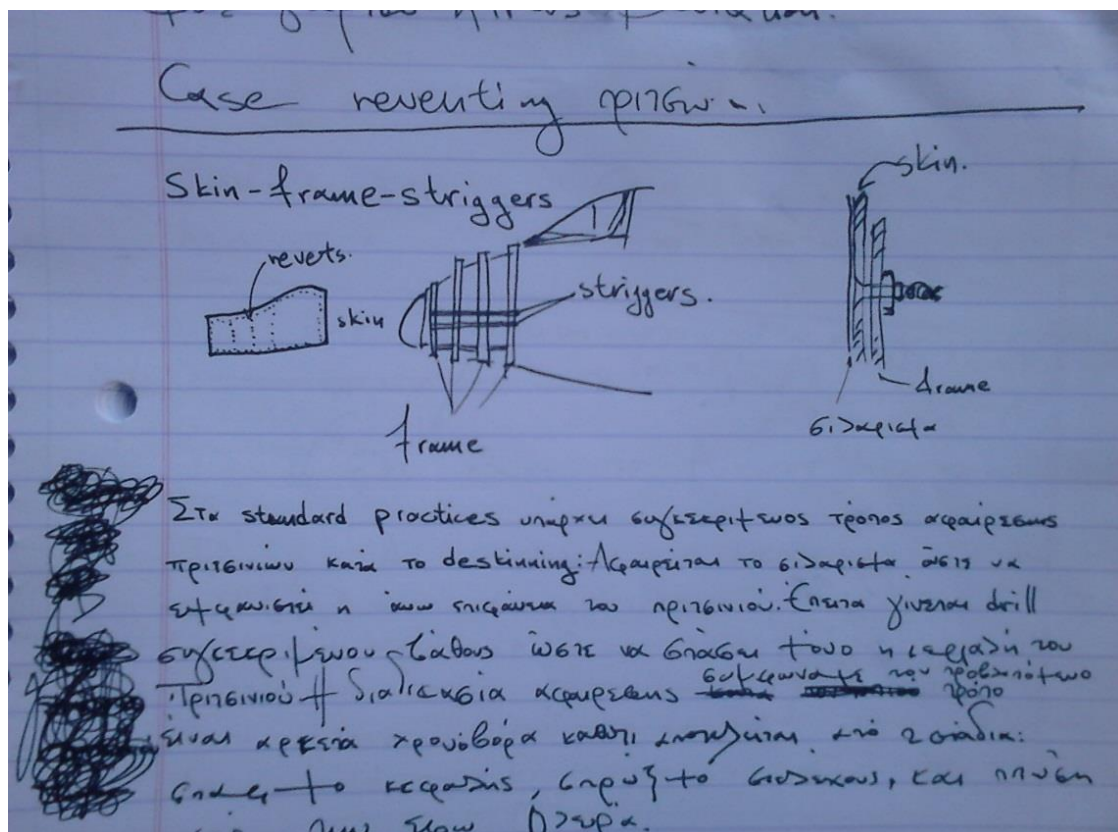 Case reventing πριτσίν
Skin-frame-striggers
skin.
reverts.
striggers.
skin
frame
frame
σιλάρισμα
Στα standard practices υπάρχει συγκεκριμένος τρόπος αφαίρεσης
πριτσινιών κατά το deskinning: Αφαιρείται το σιλάρισμα ώστε να
εμφανιστεί η άνω επιφάνεια του πριτσινιού. Έπειτα γίνεται drill
συγκεκριμένου βάθους ώστε να σπάσει μόνο η κεφαλή του
πριτσινιού Η διαδικασία αφαίρεσης σύμφωνα με τον προβλεπόμενο
τρόπο
είναι αρκετά χρονοβόρα καθότι αποτελείται από 2 στάδια:
κεφαλής, και
πλευρά.